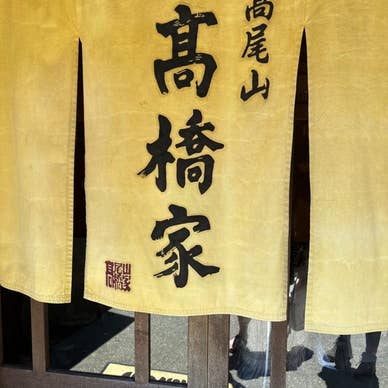 高尾山
髙橋家